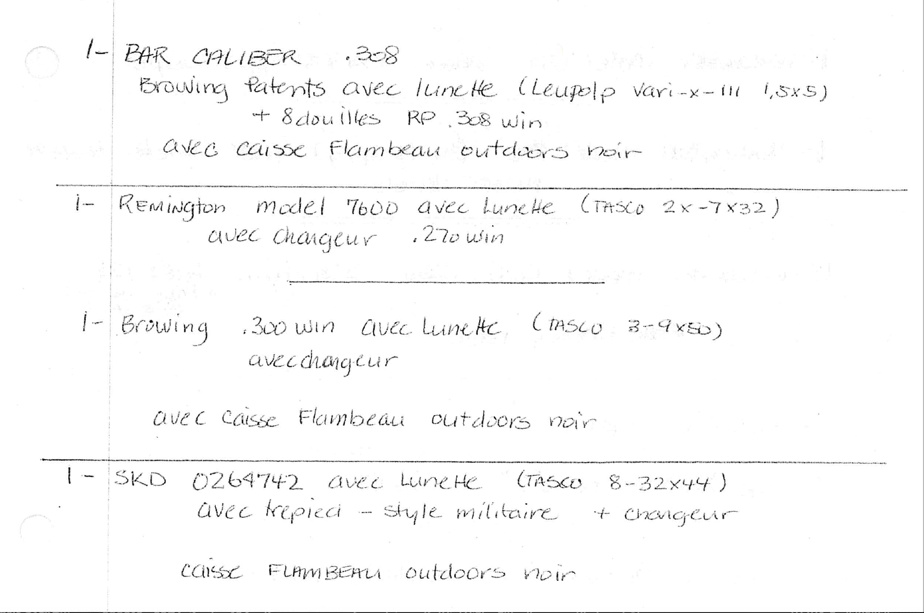 1- BAR CALIBER .308
Browing Patents avec lunette (Leupolp vari-x-III 1,5x5)
+ 8douilles RP .308 win
avec caisse Flambeau outdoors noir
1- REMington model 7600 avec Lunette (TASCO 2x-7x32)
avec chargeur .270 win
1- Browing .300 win avec Lunette (TASCO 3-9x50)
avec chargeur
avec caisse Flambeau outdoors noir
1- SKD 0264742 avec Lunette (TASCO 8-32x44)
avec trepied - style militaire + chargeur
caisse FLAMBEAU outdoors noir